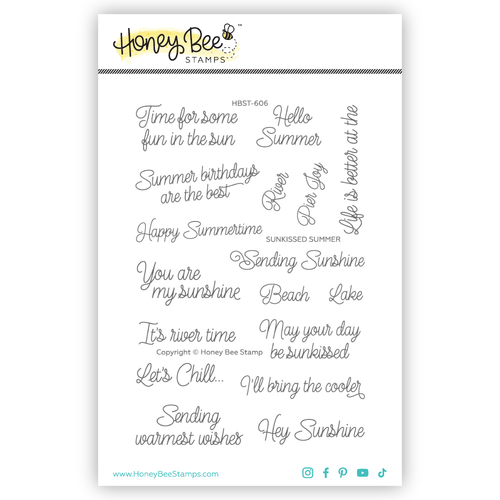 Honey Bee
STAMPS
™
HBST-606
Time for some
fun in the sun
Hello
Summer
Life is better at the
Summer birthdays
are the best
River
Pier Joy
Happy Summertime
SUNKISSED SUMMER
Sending Sunshine
You are
my sunshine
Beach
Lake
It's river time
May your day
be sunkissed
Copyright © Honey Bee Stamp
Let's Chill...
I'll bring the cooler
Sending
warmest wishes
Hey Sunshine
www.HoneyBeeStamps.com